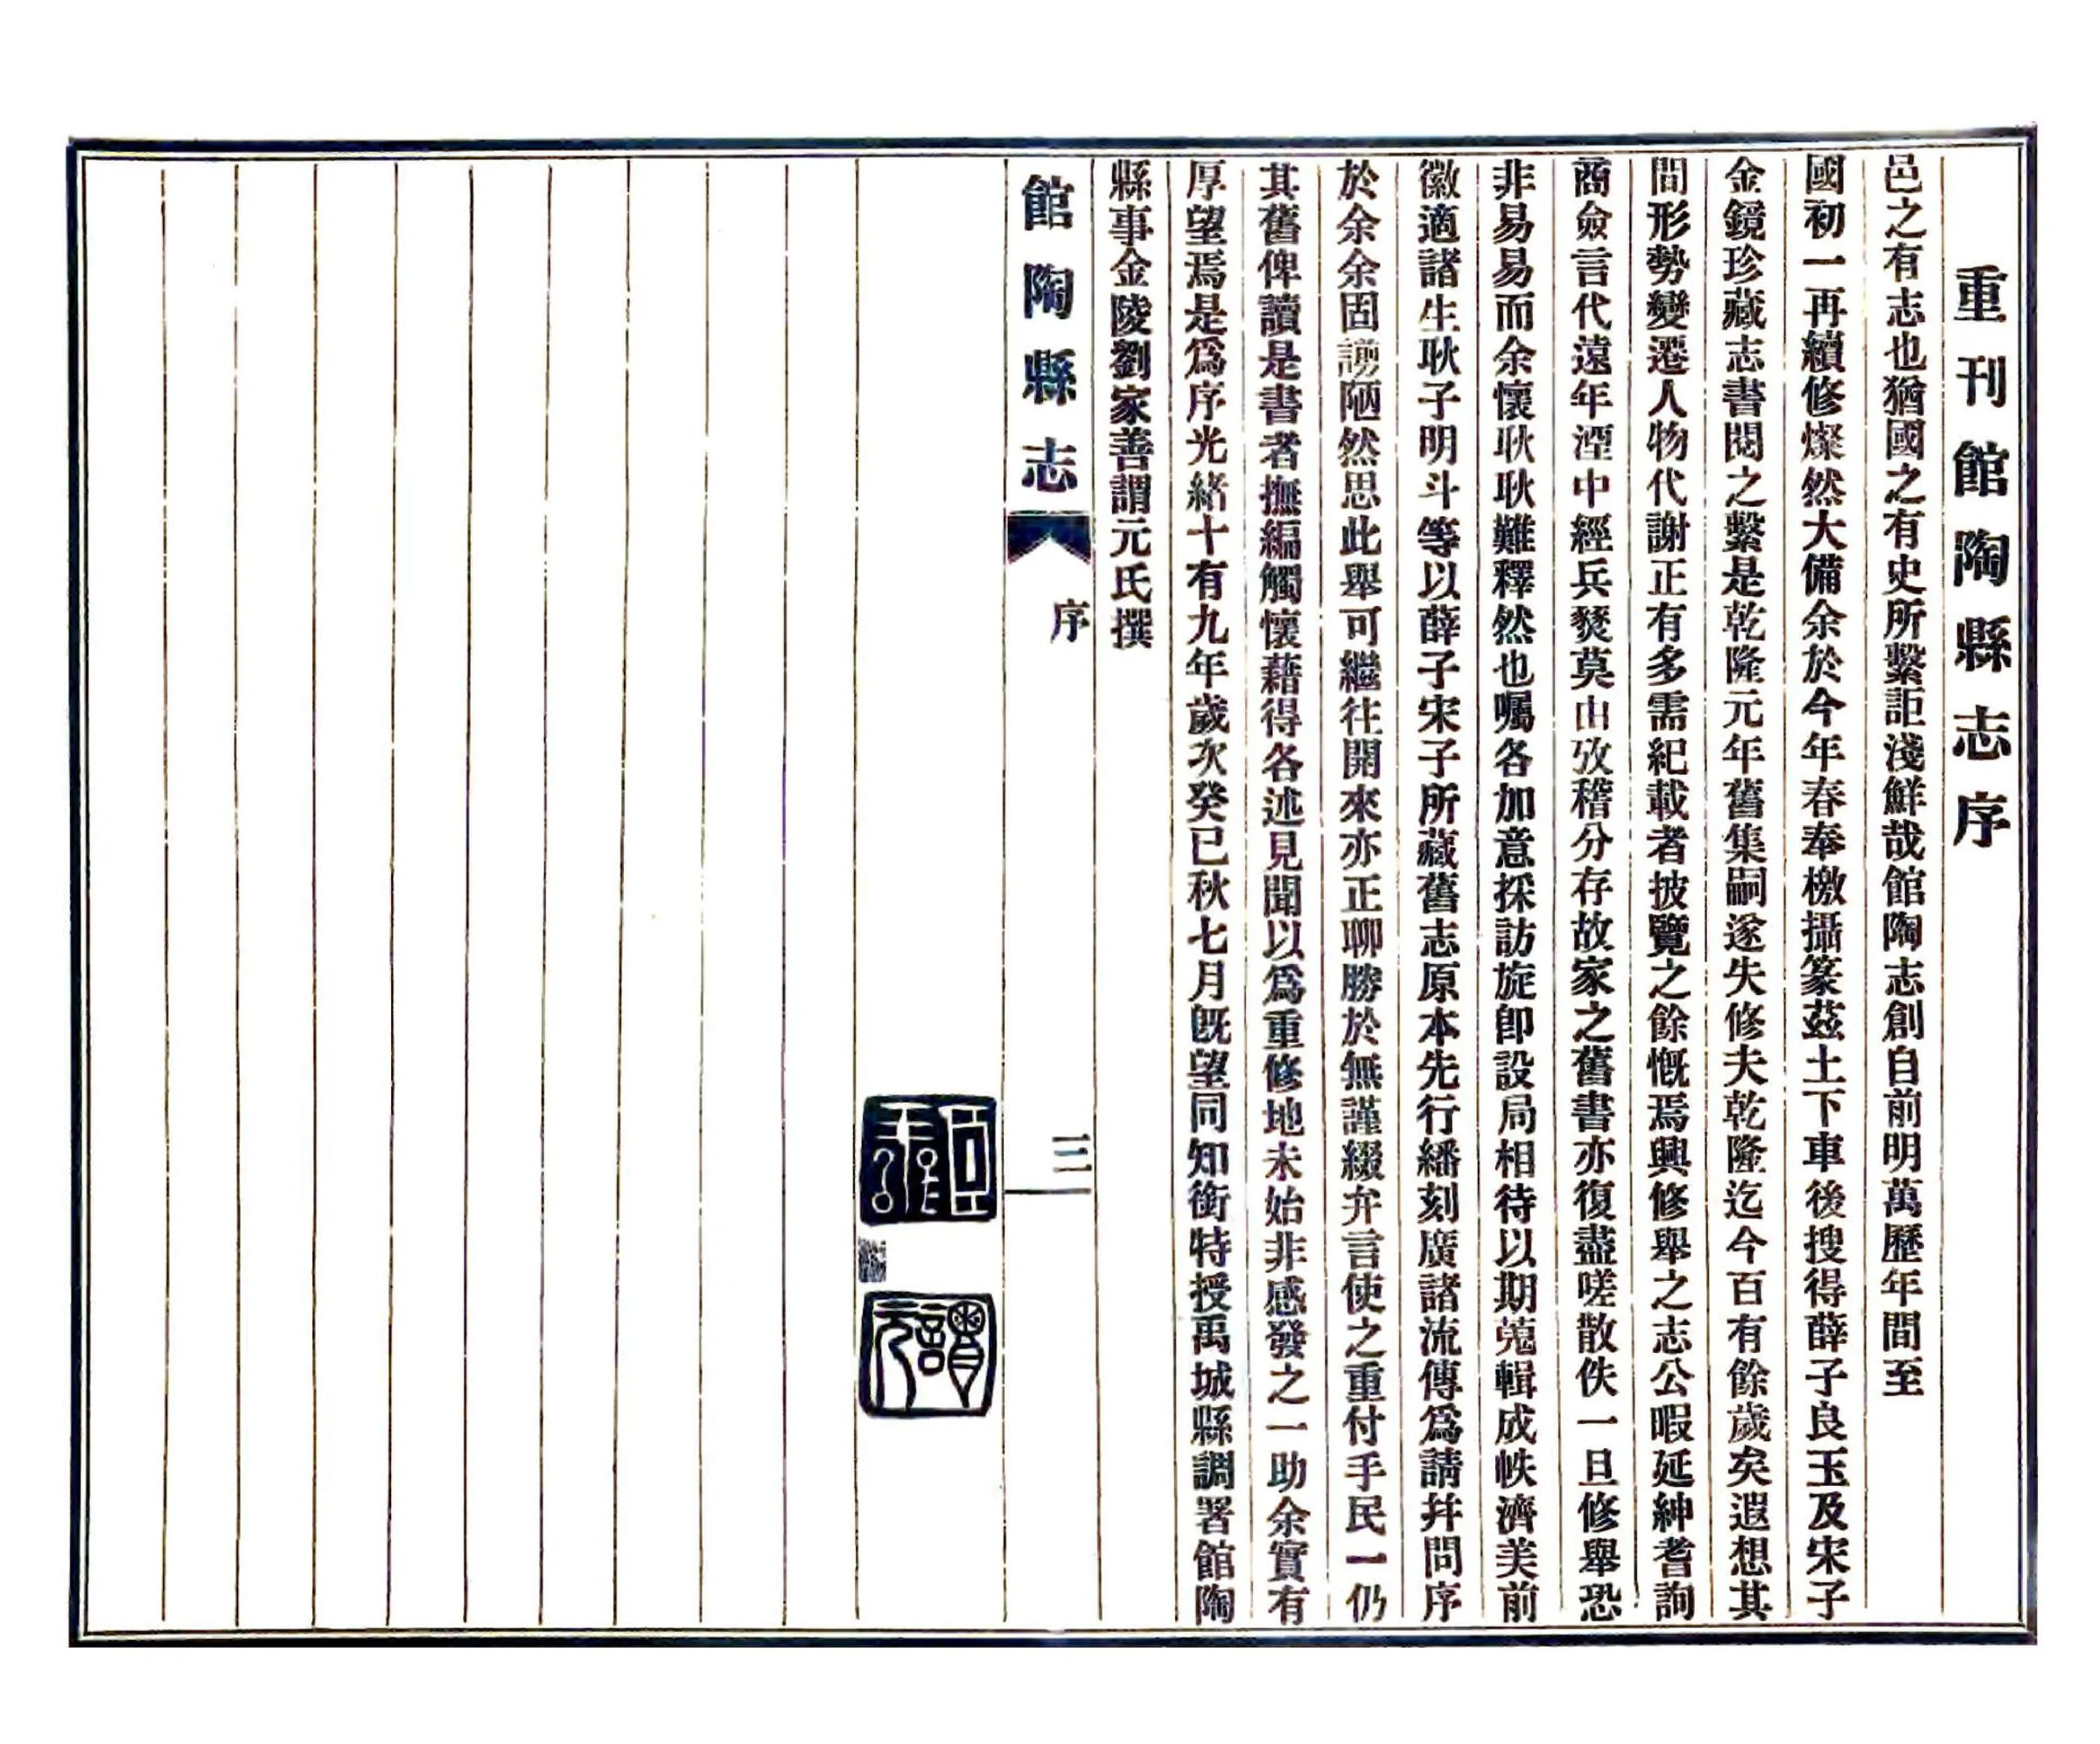 重刊館陶縣志序
邑之有志也猶國之有史所繫詎淺鮮哉館陶志創自前明萬歷年間至
國初一再續修燦然大備余於今年春奉檄攝篆茲土下車後搜得薛子良玉及宋子
金鏡珍藏志書閱之繫是乾隆元年舊集嗣遂失修夫乾隆迄今百有餘歲矣遐想其
間形勢變遷人物代謝正有多需紀載者披覽之餘慨焉興修舉之志公暇延紳耆詢
商僉言代遠年湮中經兵燹莫由攷稽分存故家之舊書亦復盡嗟散佚一旦修舉恐
非易易而余懷耿耿難釋然也囑各加意採訪旋卽設局相待以期蒐輯成帙濟美前
徽適諸生耿子明斗等以薛子宋子所藏舊志原本先行繙刻廣諸流傳爲請幷問序
於余余固謭陋然思此舉可繼往開來亦正聊勝於無謹綴弁言使之重付手民一仍
其舊俾讀是書者撫編觸懷藉得各述見聞以爲重修地未始非感發之一助余實有
厚望焉是爲序光緒十有九年歲次癸巳秋七月旣望同知銜特授禹城縣調署館陶
縣事金陵劉家善謂元氏撰
館陶縣志
序
三
謂元